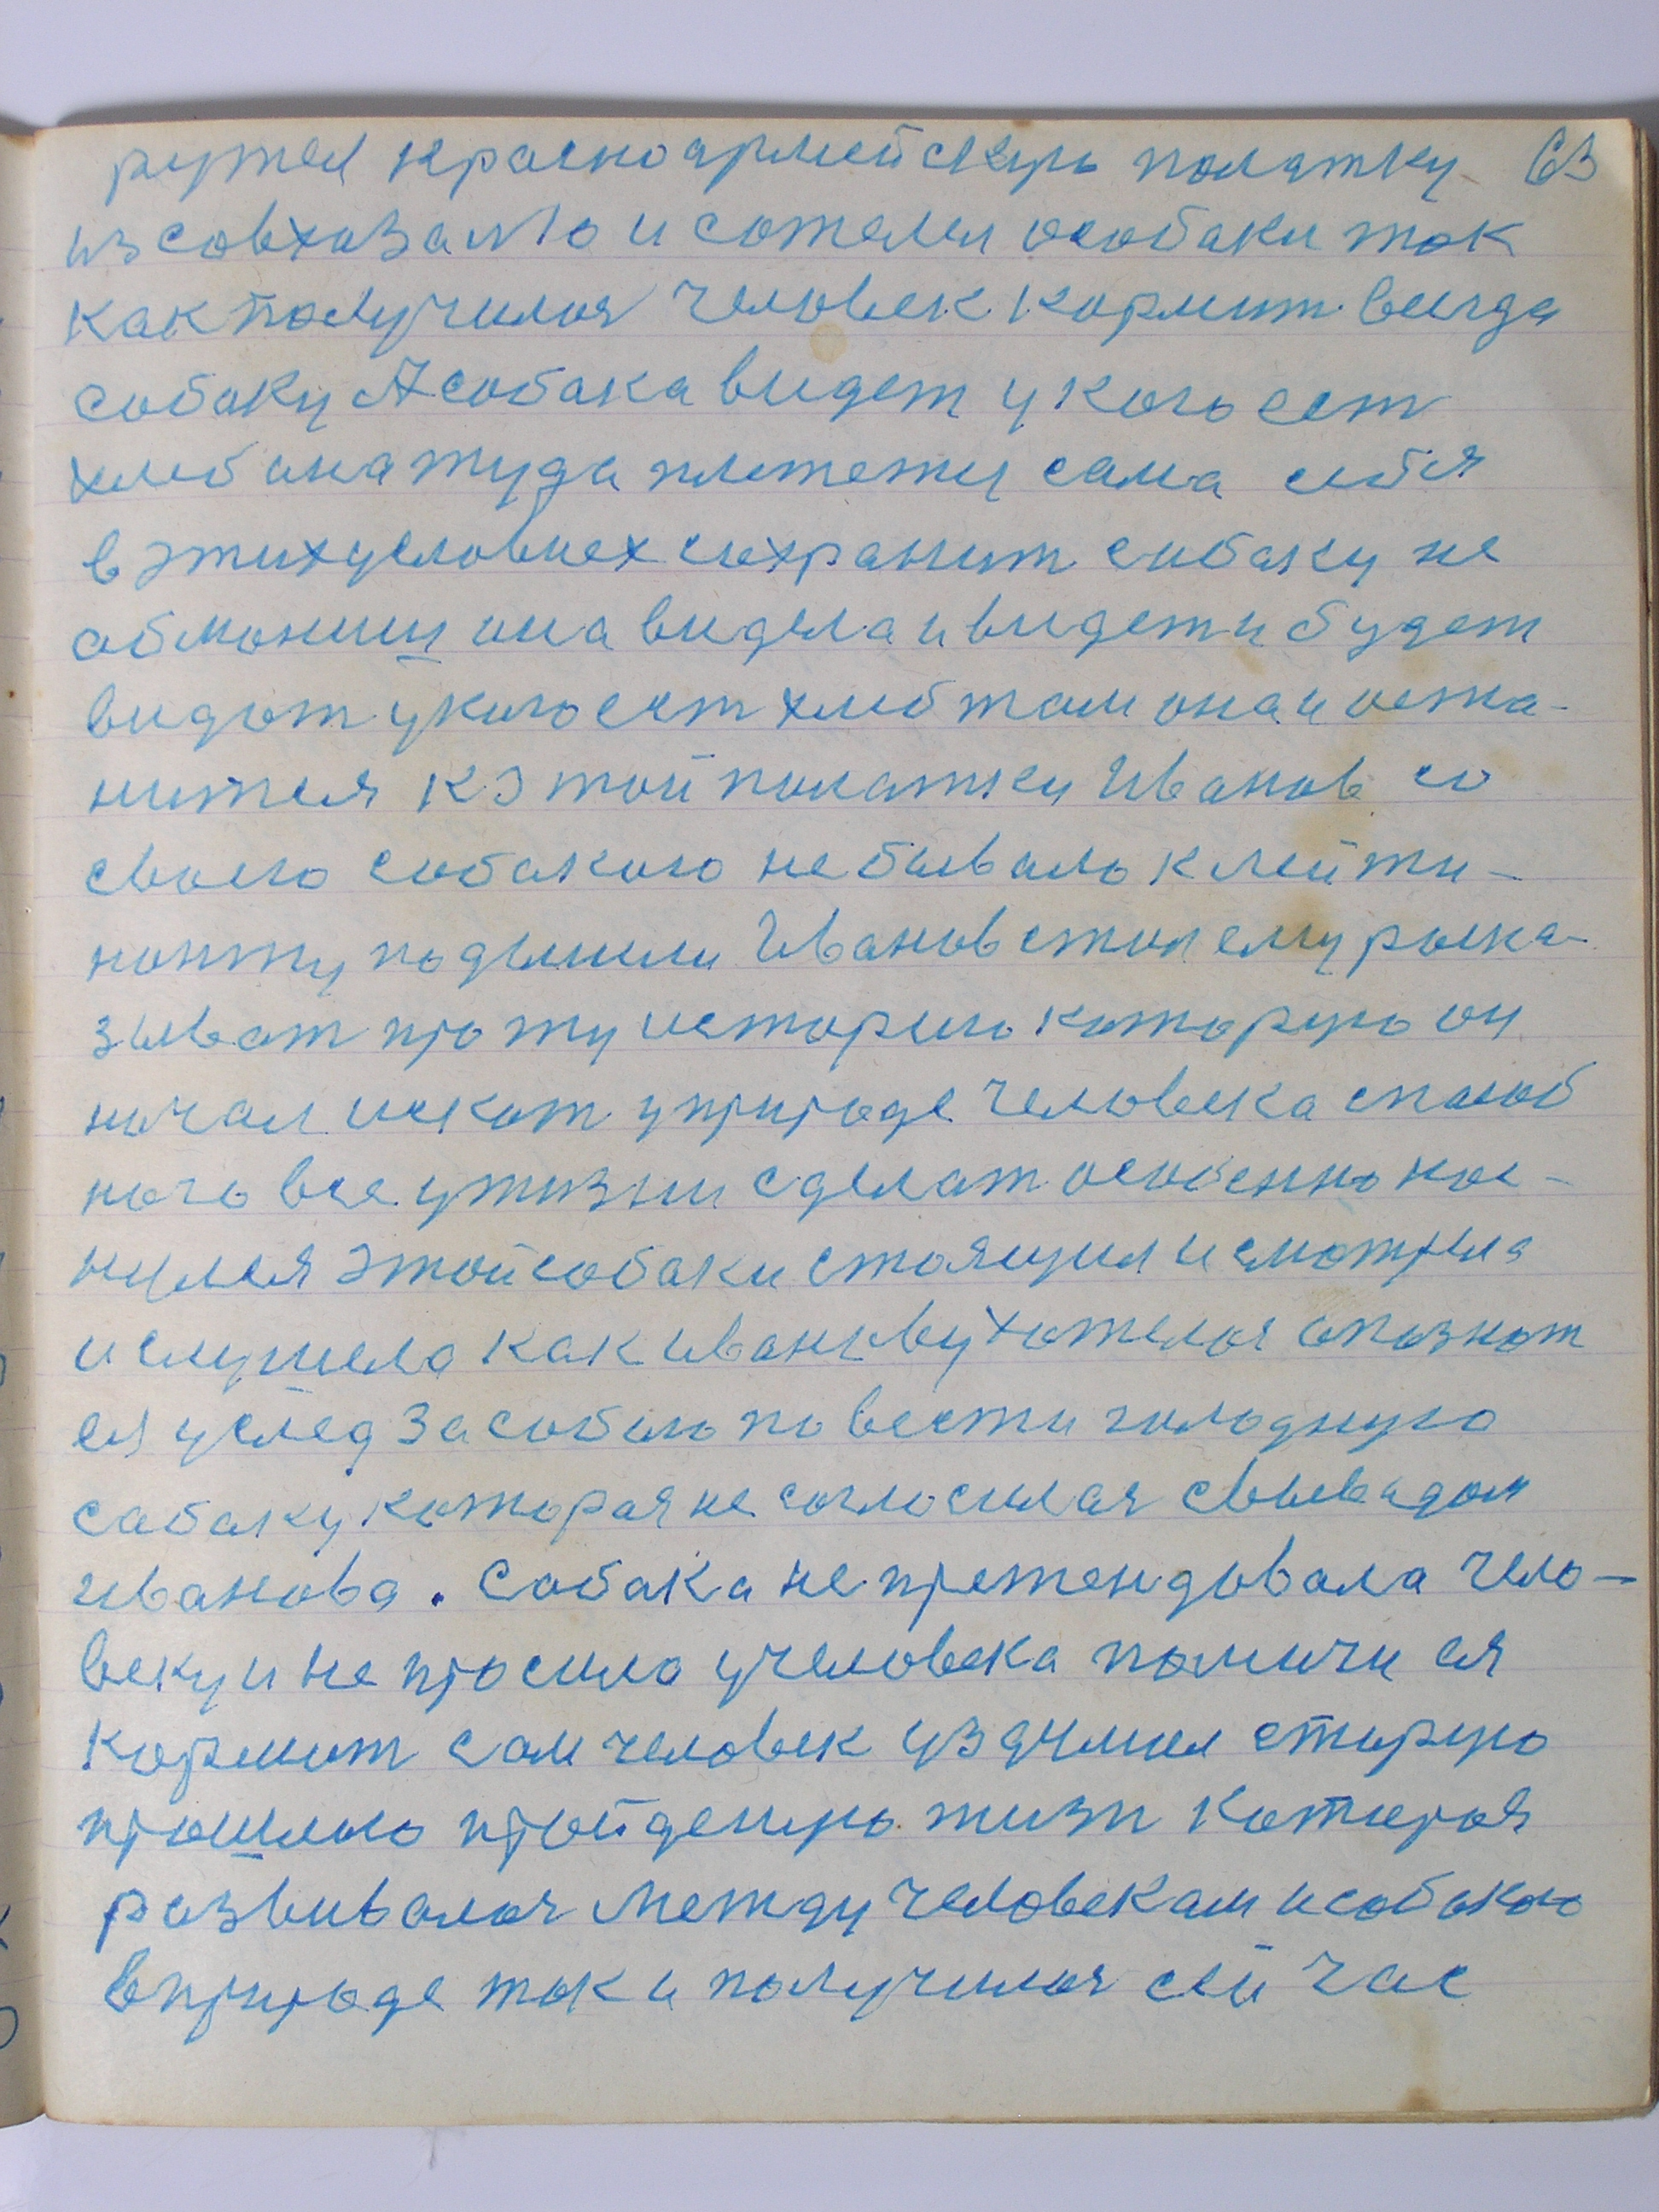 ружал красноармейскую полатку 63
из совхоза №10 и сотелел особаки так
как получился человек кормит всигда
собаку А собака видет у кого ест
хлеб она туда плетежу сама себя
в этих условиех сохранит собаку не
обмониш она видела и видет и будет
видет у кого ест хлеб там она и оста-
нится к этой полатки Иванов со
своею собакою небывало к лейти-
нонту подышли Иванов стал ему роска-
зыват про ту историю которую он
начал искат у природе человека способ
ного все у жизни сделат особенно кос-
нулся этой собаки стоящия и смотрела
и слушела как иванову хотелся опознат
ея услед за собою повести голодную
сабаку которая не согласилая свывадом
иванова . Собака не претендовала чело-
веку и не просила у человека помичи ея
кормит сам человек уздумал старую
прошлую пройденую жизн каторая
розвивалоя между человекам и собакою
в природе так и получилоя сей час